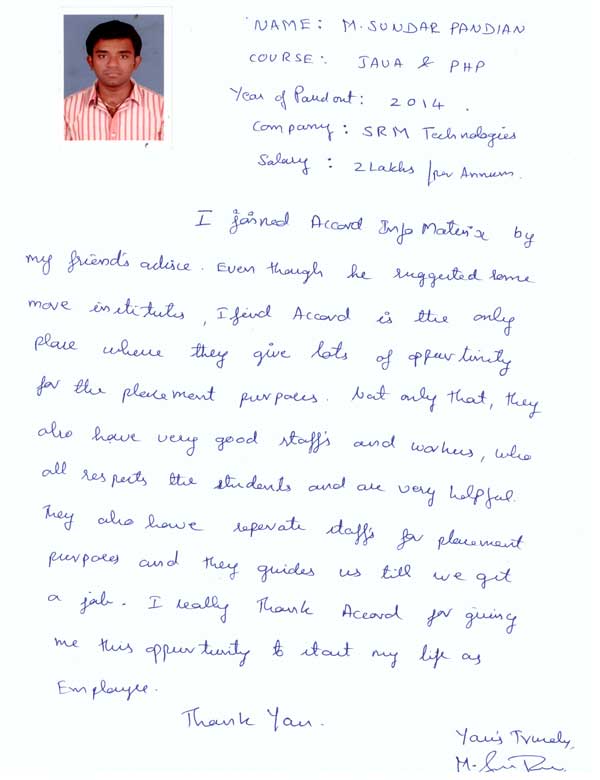 NAME: M. SUNDAR PANDIAN
COURSE: JAVA & PHP
Year of Passed out: 2014.
Company: SRM Technologies
Salary: 2 Lakhs /per Annum.
I joined Accord Info Matrix by
my friend's advice. Even though he suggested some
more institutes, I find Accord is the only
place where they give lots of oppurtinity
for the placement purposes. Not only that, they
also have very good staffs and workers, who
all respects the students and are very helpful.
They also have seperate staffs for placement
purposes and they guides us till we get
a job. I really Thank Accord for giving
me this oppurtunity to start my life as
Employee.
Thank You.
Your's Truely,
M.